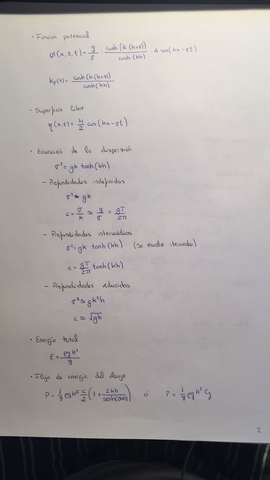 · Función potencial
Ø(x,z,t) = g/σ · cosh(k(h+z))/cosh(kh) A sen(kx-σt)
kp(z) = cosh(k(h+z))/cosh(kh)
· Superficie libre
η(x,t) = H/2 cos(kx-σt)
· Ecuación de la dispersión
σ² = gk tanh(kh)
- Profundidades indefinidas
σ² ≈ gk
c = σ/k ≈ g/σ = gT/2π
- Profundidades intermedias
σ² = gk tanh(kh) (se resuelve iterando)
c = gT/2π tanh(kh)
- Profundidades reducidas
σ² ≈ gk²h
c ≈ √gh
· Energía total
E = ρgH²/8
· Flujo de energía del oleaje
P = 1/8 ρgH² c/2 (1 + 2kh/senh(2kh)) ó P = 1/8 ρgH² Cg
2